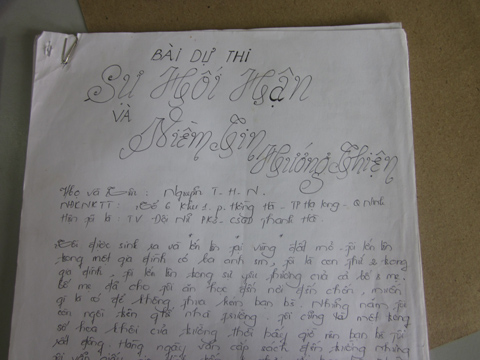 BÀI DỰ THI
Sự Hối Hận
VÀ
Niềm Tin
Hướng Thiện
Họ và tên : Nguyễn T - H - N.
NĐKNKTT : Số 6 Khu 1. p. Hồng Hà - TP Hạ Long - Q Ninh
Hiện là : TV Đội Nữ PK2 - CSGD Thanh Hà.
Tôi được sinh ra và lớn lên tại vùng đất mỏ. Tôi lớn lên
trong một gia đình có ba anh em, tôi là con thứ 2 trong
gia đình, tôi lớn lên trong sự yêu thương của cả bố & mẹ.
bố mẹ đã cho tôi ăn học đến nơi đến chốn, muốn
gì là có để không thua kém bạn bè. Những năm tôi
còn ngồi trên ghế nhà trường. tôi cũng là một trong
số hoa khôi của trường thời bấy giờ nên bạn bè
Hàng ngày vẫn cắp sách đến trường nhưng